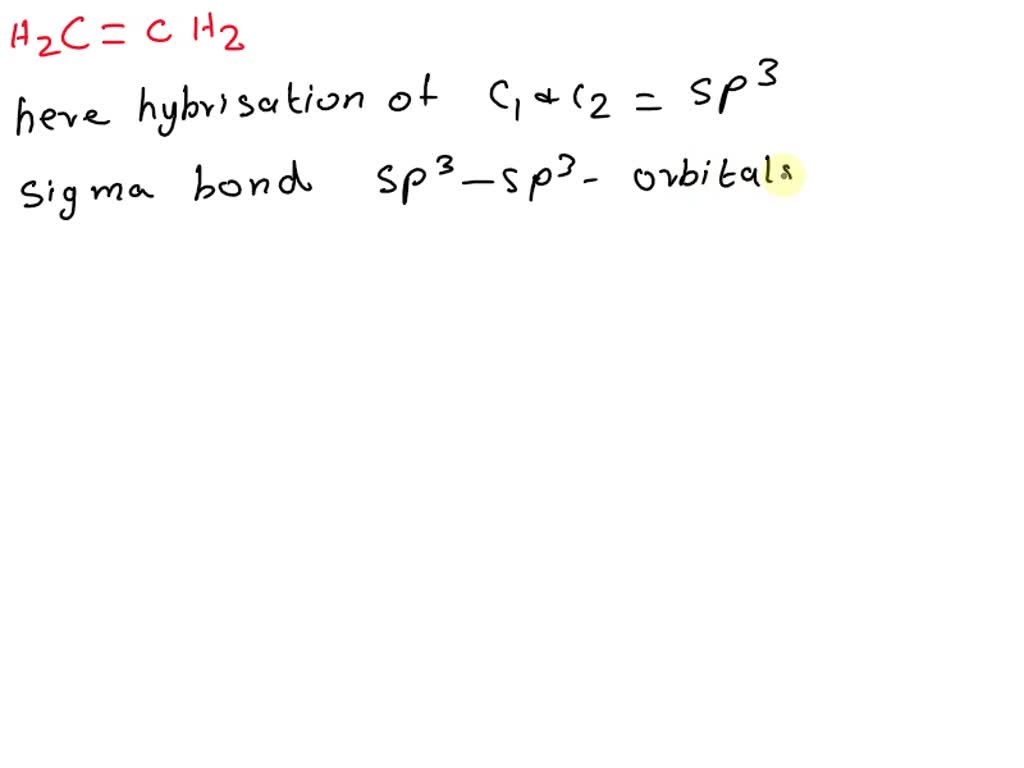 H₂C = CH₂
here hybrisation of C₁ & C₂ = sp³
sigma bond sp³-sp³- orbitals